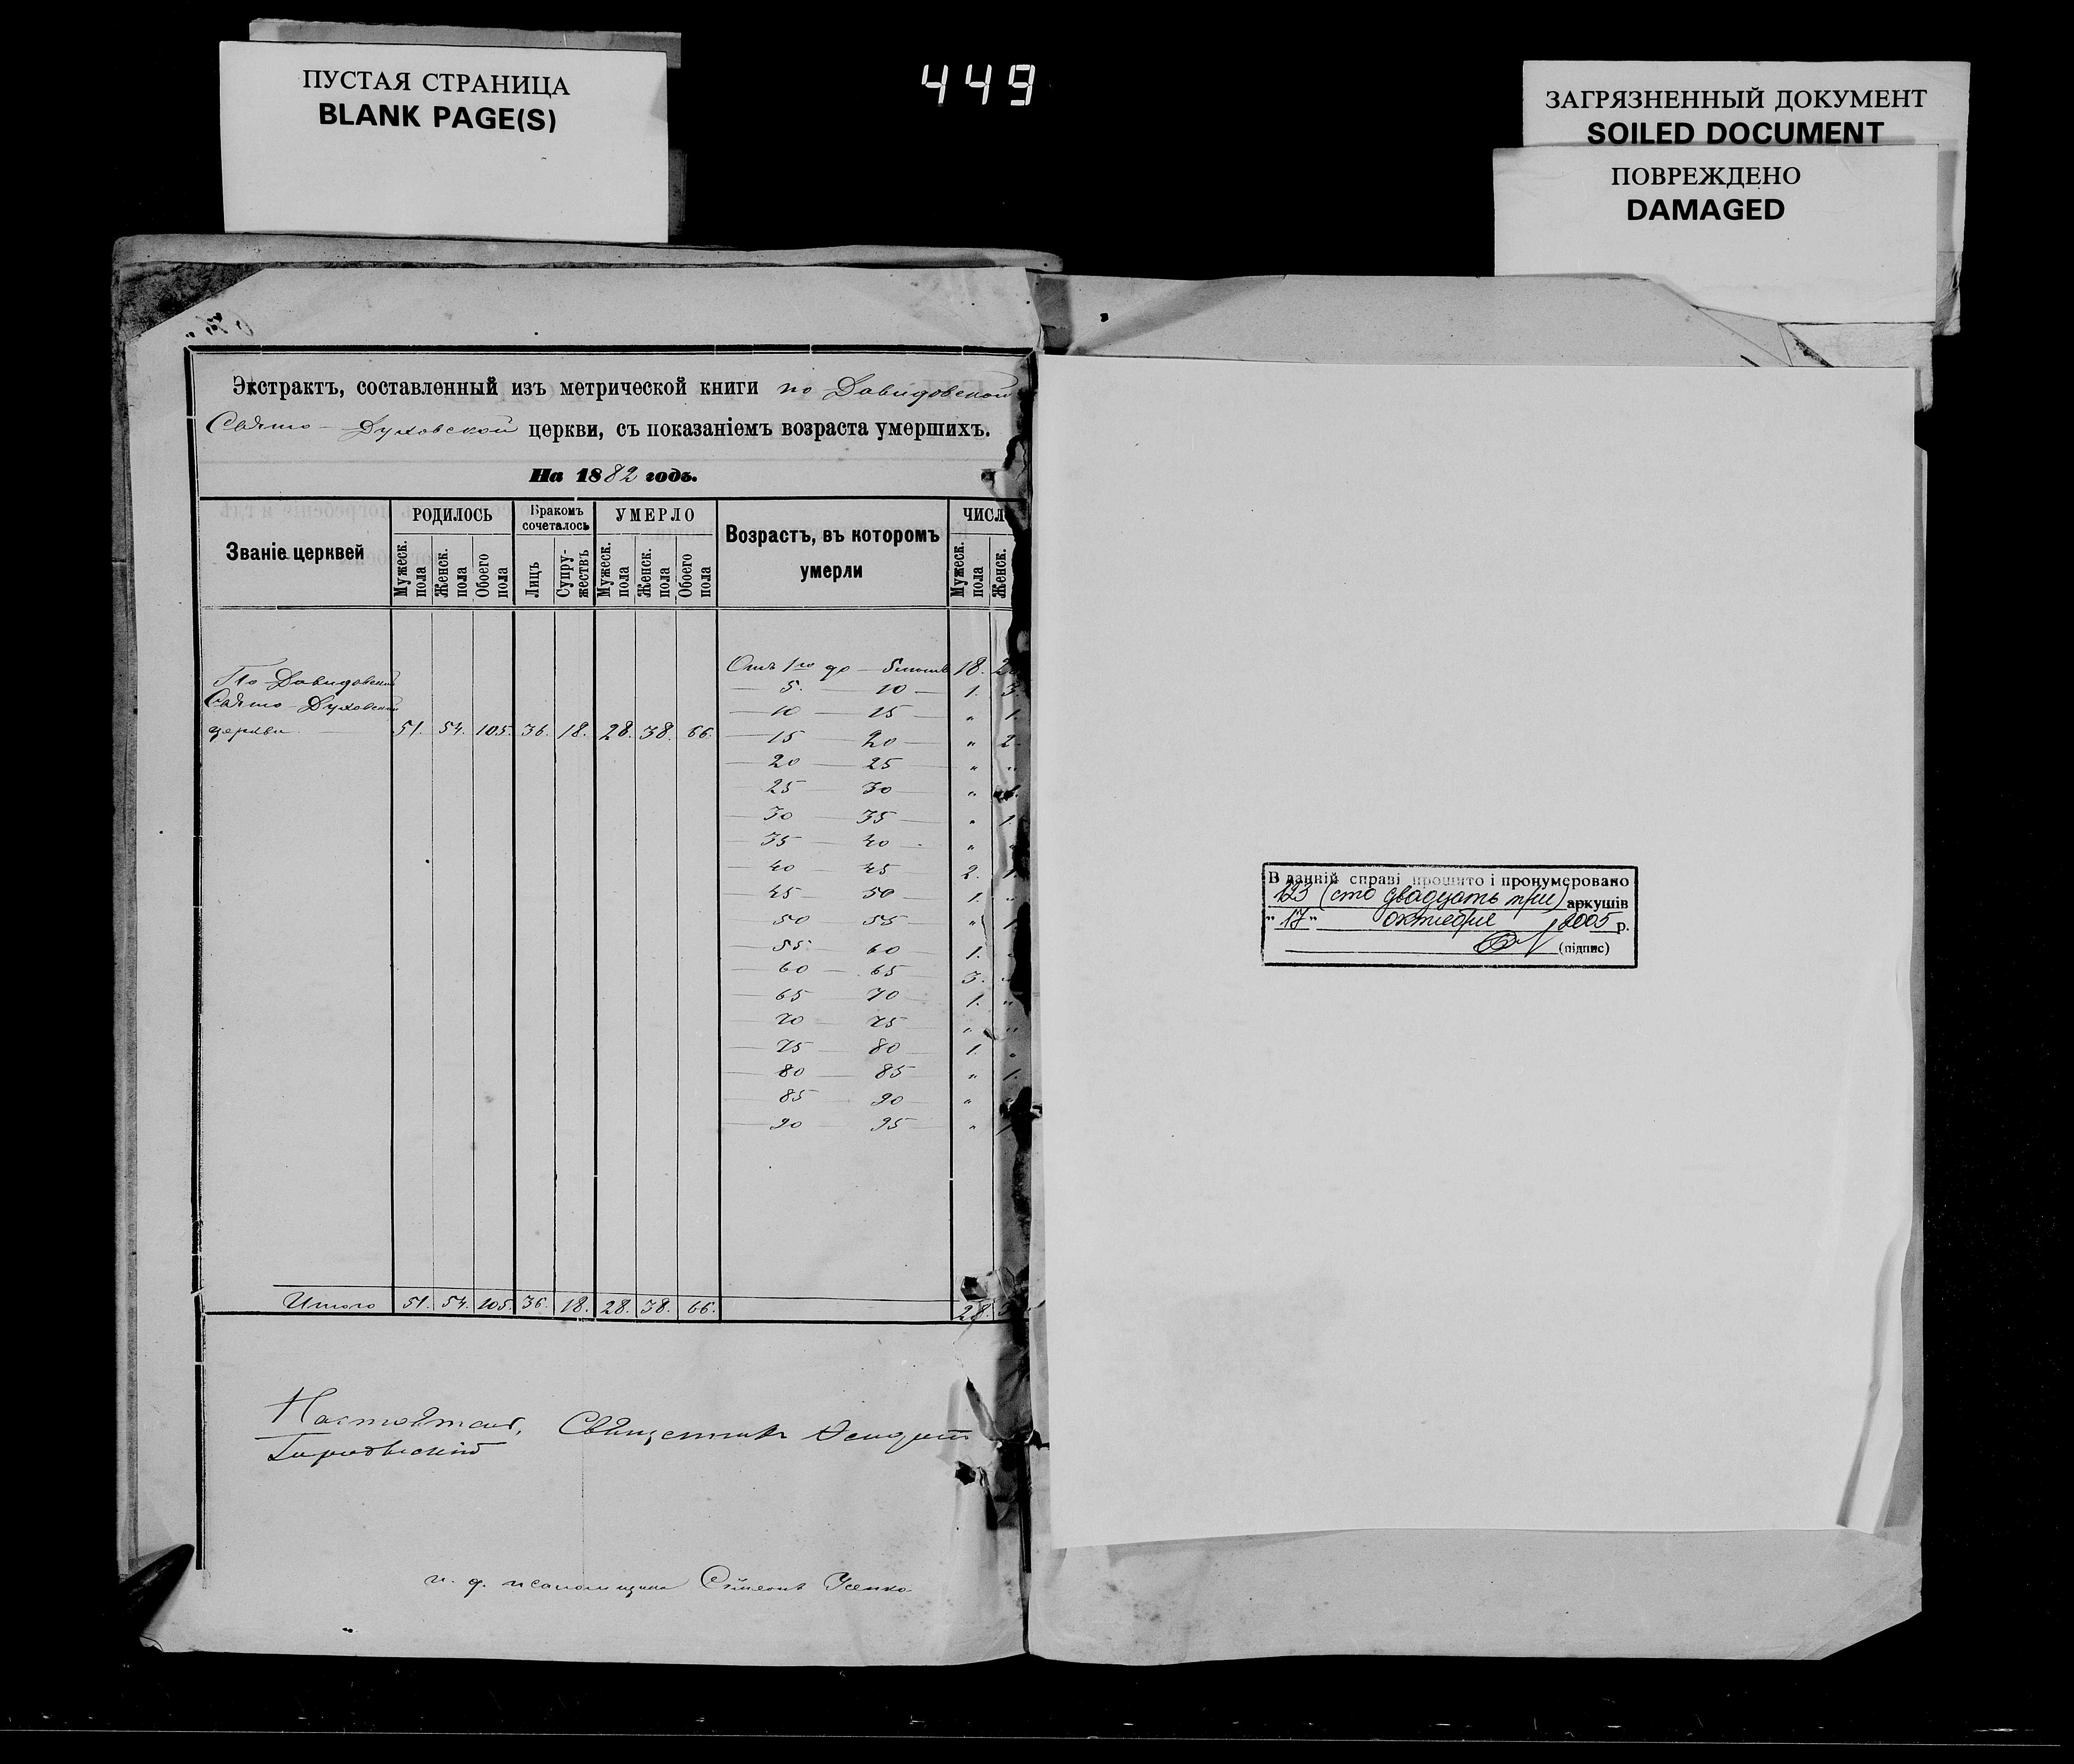 ПУСТАЯ СТРАНИЦА
BLANK PAGE(S)
449
ЗАГРЯЗНЕННЫЙ ДОКУМЕНТ
SOILED DOCUMENT
ПОВРЕЖДЕНО
DAMAGED
Экстрактъ, составленный изъ метрической книги по Давидовской
Свято-Духовской церкви, съ показаніемъ возраста умершихъ.
На 1882 годъ.
Званіе церквей
РОДИЛОСЬ
Мужеск. пола
Женск. пола
Обоего пола
Бракомъ сочеталось
Лицъ
Супружествъ
УМЕРЛО
Мужеск. пола
Женск. пола
Обоего пола
Возрастъ, въ которомъ умерли
ЧИСЛО
Мужеск. пола
Женск.
По Давидовской
Свято-Духовской
церкви 51. 54. 105. 36. 18. 28. 38. 66.
Отъ 1го до 5 18.
5. 10 1. 3.
10 15 " 1.
15 20 " 2.
20 25 " "
25 30 "
30 35 " 1.
35 40 " "
40 45 2. 1.
45 50 1. "
50 55 " 1.
55 60 1.
60 65 3. "
65 70 1. "
70 75 " "
75 80 1. "
80 85 " 1.
85 90 " "
90 95 "
Итого 51. 54. 105. 36. 18. 28. 38. 66. 28.
Настоятель, Священникъ
и. д. псаломщика Стефанъ Усенко
В данній справі прошито і пронумеровано
123 (сто двадцать три) аркушів
" 17 " октября 2005 р.
(підпис)